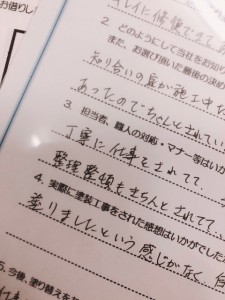 お借りし
キレイに修復できて
2. どのようにして当社をお知
また、お選び頂いた最後の決め
知り合いの
あったのでちゃんとされてい
3 担当者、職人の対応・マナー等はいか
丁寧に仕事をされてて
整理整頓もきちんとされてて
4. 実際に塗装工事をされた感想はいかがでした
塗りましたという感じがなく
5. 今後、塗り替えをお